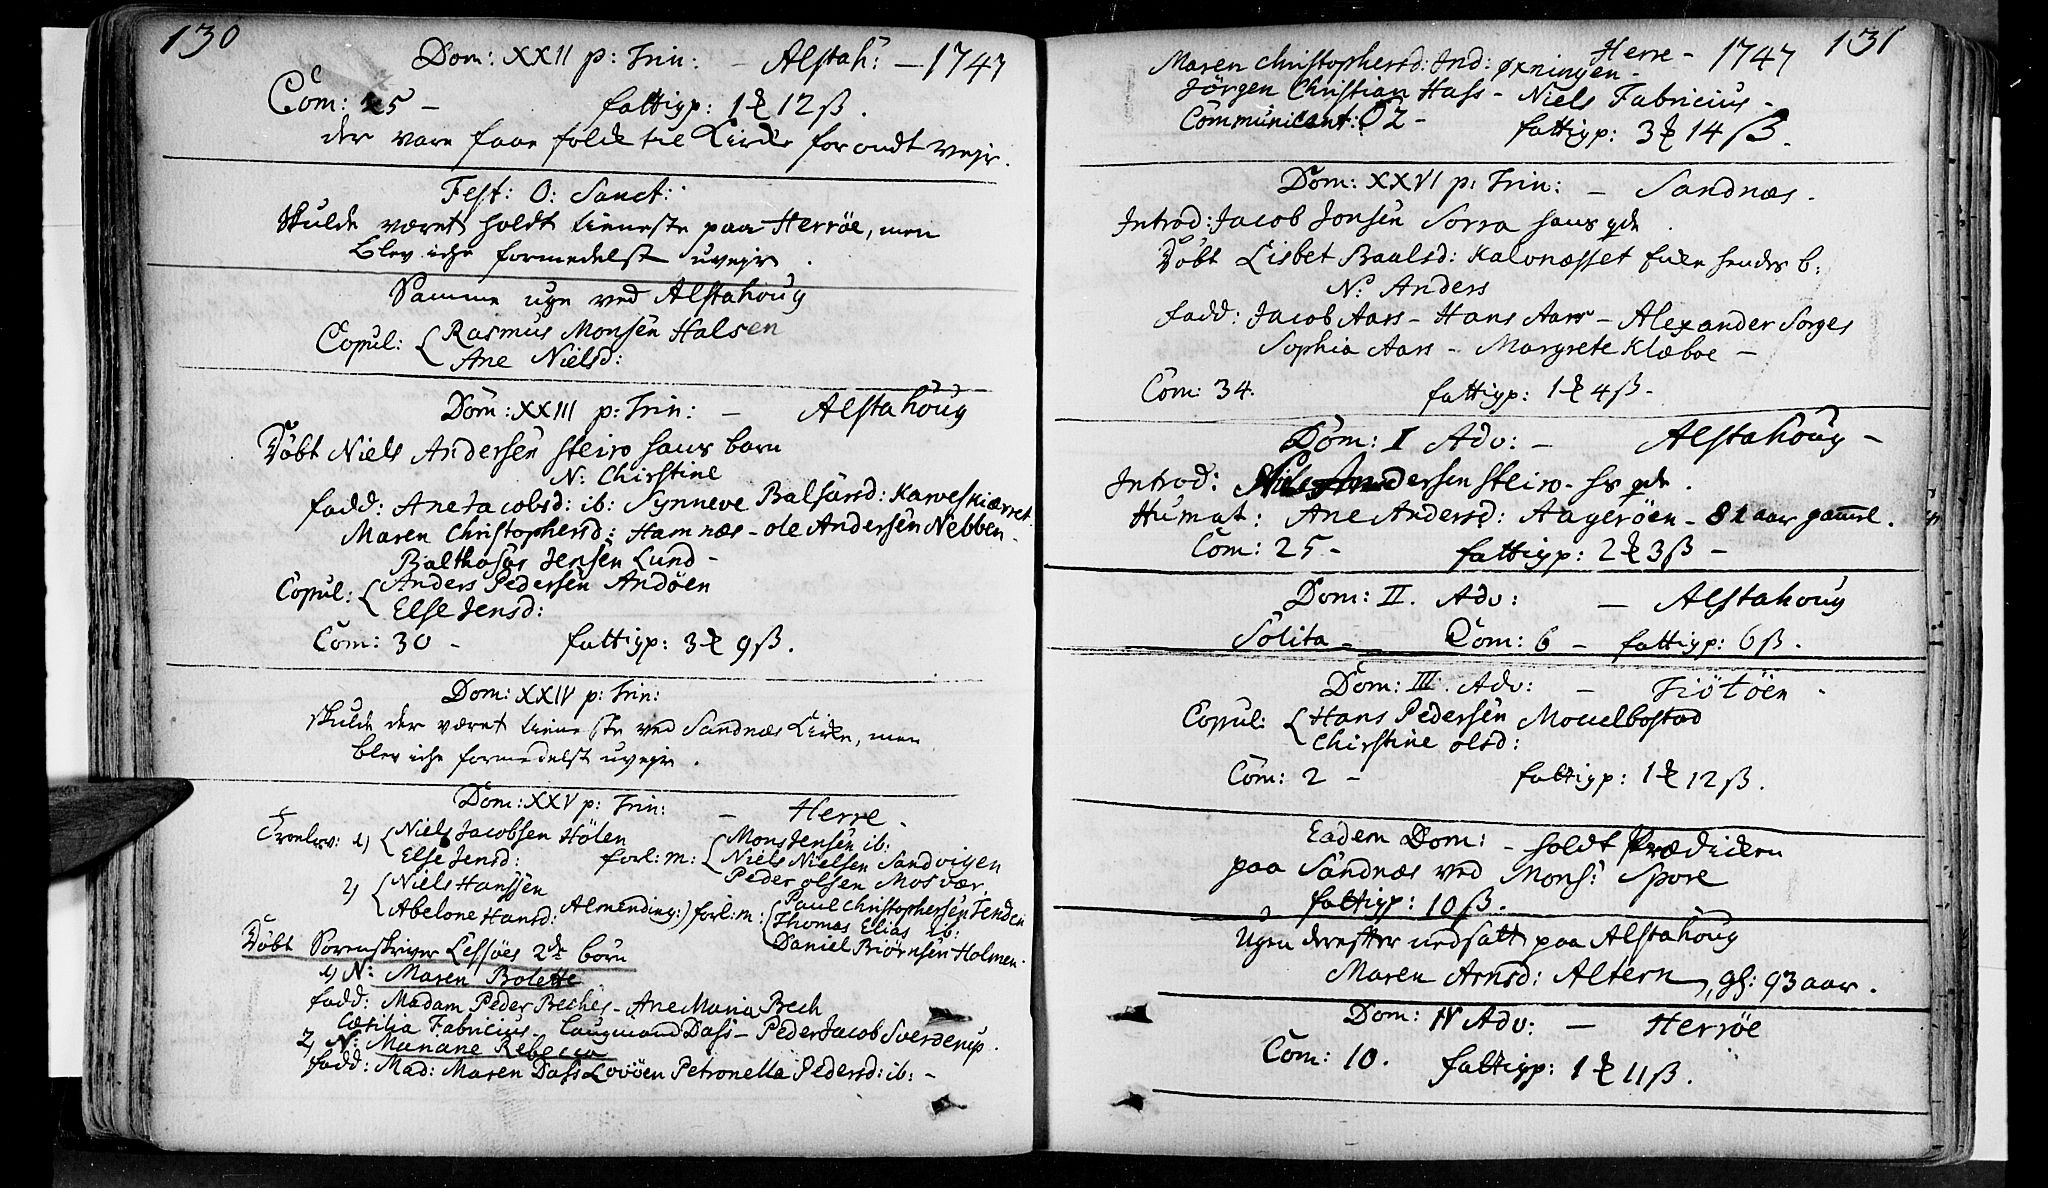 130
Dom: XXII p: Trin: – Alstah: – 1747
Com: 25 – fattigp: 1 ℔ 12 ß.
der vare faae folck til Kircke for ondt vejr.
Fest: O: Sanct:
Skulde været holdt tieneste paa Herröe, men
blev iche formedelst uvejr.
Samme uge ved Alstahoug
Copul: { Rasmus Monsen Halsen
Ane Nielsd:
Dom: XXIII p: Trin: – Alstahoug
Döbt Niels Andersen Steiro hans barn
N: Chirstine
fadd: Ane Jacobsd: ib: Synneve Balsärsd: Karveskiæret
Maren Christophersd: Hamnæs – ole Andersen Nebben –
Balthasar Jensen Lund –
Copul: { Anders Pedersen Andöen
Else Jensd:
Com: 30 – fattigp: 3 ℔ 9 ß.
Dom: XXIV p: Trin:
skulde der været tieneste ved Sandnæs Kircke, men
blev iche formedelst uvejr.
Dom: XXV p: Trin: – Herrö –
Troelov: 1) { Niels Jacobsen Hölen
Else Jensd: forl: m: { Mons Jensen ib:
Niels Nielsen Sandvigen
2) { Niels Hanssen Peder olsen Mosvær
Abelone Hansd: Almending: ) forl: m: { Paul Christophersen Tenden
Thomas Elias ib:
Döbt Sorenskriver Lessöes 2de börn Daniel Biörnsen Holmen –
1) N: Maren Bolette
fadd: Madam Peder Beches – Ane Maria Bech
Cæsilia Fabricius – Laugmand Dass – Peder Jacob Sverdrup.
2) N: Mariane Rebecca
fadd: Mad: Maren Dass Lovöen Petronella Pedersd: ib: –
131
Herrö – 1747
Maren Christophersd: Ind: Öxningen –
Jörgen Christian Hass – Niels Fabricius –
Communicant: 62 – fattigp: 3 ℔ 14 ß.
Dom: XXVI p: Trin: – Sandnæs.
Introd: Jacob Jonsen Sorra hans qde.
Döbt Lisbet Baalsd: Kalvnæsset hendes b:
N: Anders
fadd: Jacob Aars – Hans Aars – Alexander Sorges
Sophia Aars – Margrete Klæboe –
Com: 34. fattigp: 1 ℔ 4 ß –
Dom: I Adv: – Alstahoug –
Introd: Niels Andersen Steiro – hs qde.
Humat: Ane Andersd: Aageröen – 81 aar gammel.
Com: 25 – fattigp: 2 ℔ 3 ß –
Dom: II. Adv: – Alstahoug
Solita – Com: 6 – fattigp: 6 ß.
Dom: III. Adv: – Tiötöen –
Copul: { Hans Pedersen Mouelbostad
Chirstine olsd:
Com: 2 – fattigp: 1 ℔ 12 ß.
Eadem Dom: – holdt Prædicken
paa Sandnæs ved Mons: Spore
fattigp: 10 ß.
Ugen derefter nedsatt paa Alstahoug
Maren Arnsd: Altern, gl: 93 aar.
Dom: IV Adv: – Herröe
Com: 10. fattigp: 1 ℔ 11 ß.